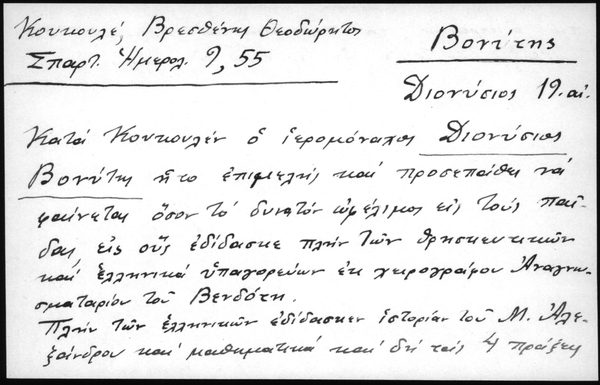 Κουκουλέ, Βρεσθένης Θεοδώρητος
Σπαρτ. Ἡμερολ. 9, 55
Βονίτης
Διονύσιος 19. αἰ.
Κατά Κουκουλέν ὁ ἱερομόναχος Διονύσιος
Βονίτης ἦτο ἐπιμελής καί προσεπάθει νά
φαίνεται ὅσον τό δυνατόν ὠφέλιμος εἰς τούς παῖ-
δας, εἰς οὕς ἐδίδασκε πλήν τῶν θρησκευτικῶν
καί ἑλληνικά ὑπαγορεύων ἐκ χειρογράφου Ἀναγνω-
σματαρίου τοῦ Βενδότη.
Πλήν τῶν ἑλληνικῶν ἐδίδασκεν ἱστορίαν τοῦ Μ. Ἀλε-
ξάνδρου καί μαθηματικά καί δή τάς 4 πράξεις